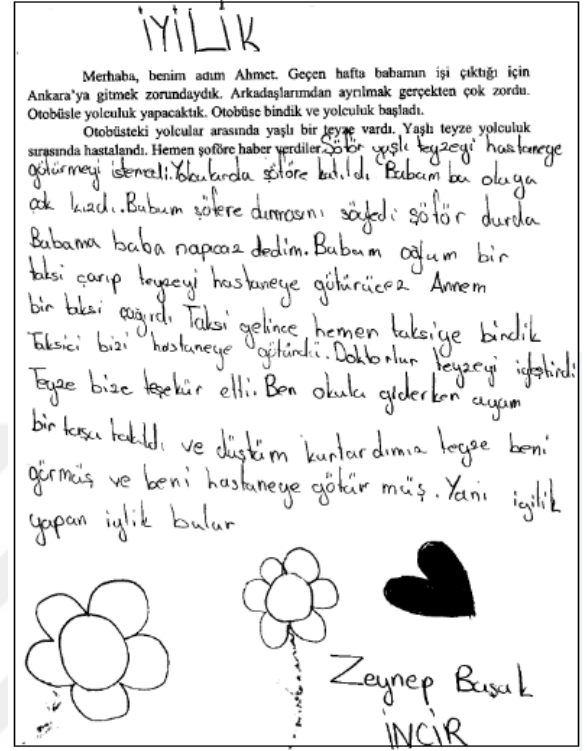 İYİLİK
Merhaba, benim adım Ahmet. Geçen hafta babamın işi çıktığı için
Ankara'ya gitmek zorundaydık. Arkadaşlarımdan ayrılmak gerçekten çok zordu.
Otobüsle yolculuk yapacaktık. Otobüse bindik ve yolculuk başladı.
Otobüsteki yolcular arasında yaşlı bir teyze vardı. Yaşlı teyze yolculuk
sırasında hastalandı. Hemen şoföre haber verdiler. Şöför yaşlı teyzeyi hastaneye
götürmeyi istemedi. Yolcularda şöföre katıldı Babam bu olaya
çok kızdı. Babam şöfere durmasını söyledi şöför durda
Babama baba napıcaz dedim. Babam oğlum bir
taksi çarıp teyzeyi hastaneye götürücez Annem
bir taksi çağırdı Taksi gelince hemen taksiye bindik
Taksici bizi hastaneye götürdü. Doktorlar teyzeyi iyleştirdi
Teyze bize teşekür etti. Ben okula giderken ayam
bir taşa takıldı ve düştüm kurtardımız teyze beni
görmüş ve beni hastaneye götür müş. Yani iyilik
yapan iylik bulur
Zeynep Başak
İNCİR